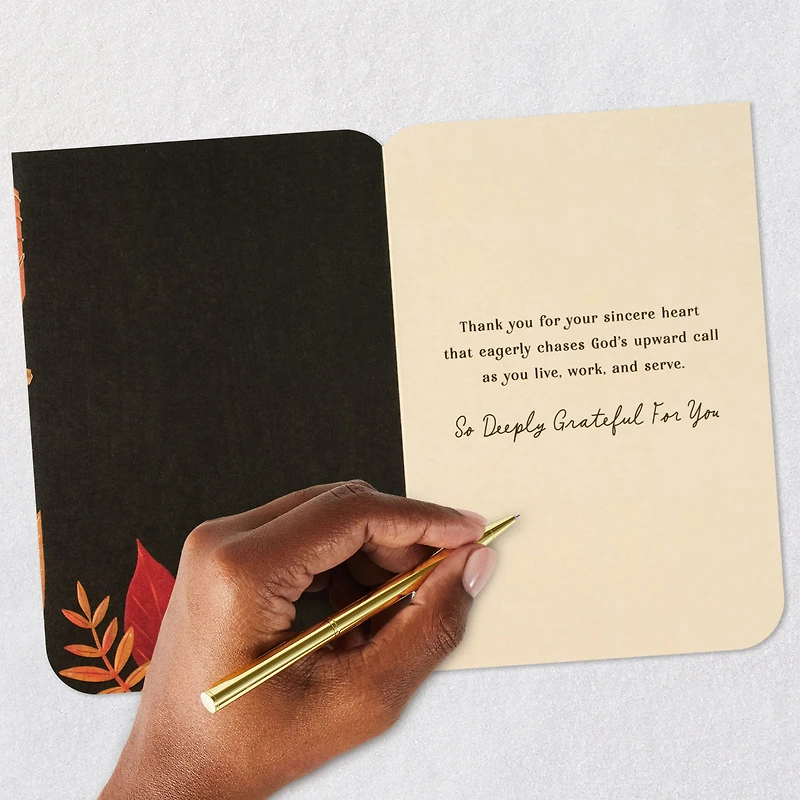 Thank you for your sincere heart
that eagerly chases God's upward call
as you live, work, and serve.
So Deeply Grateful For You